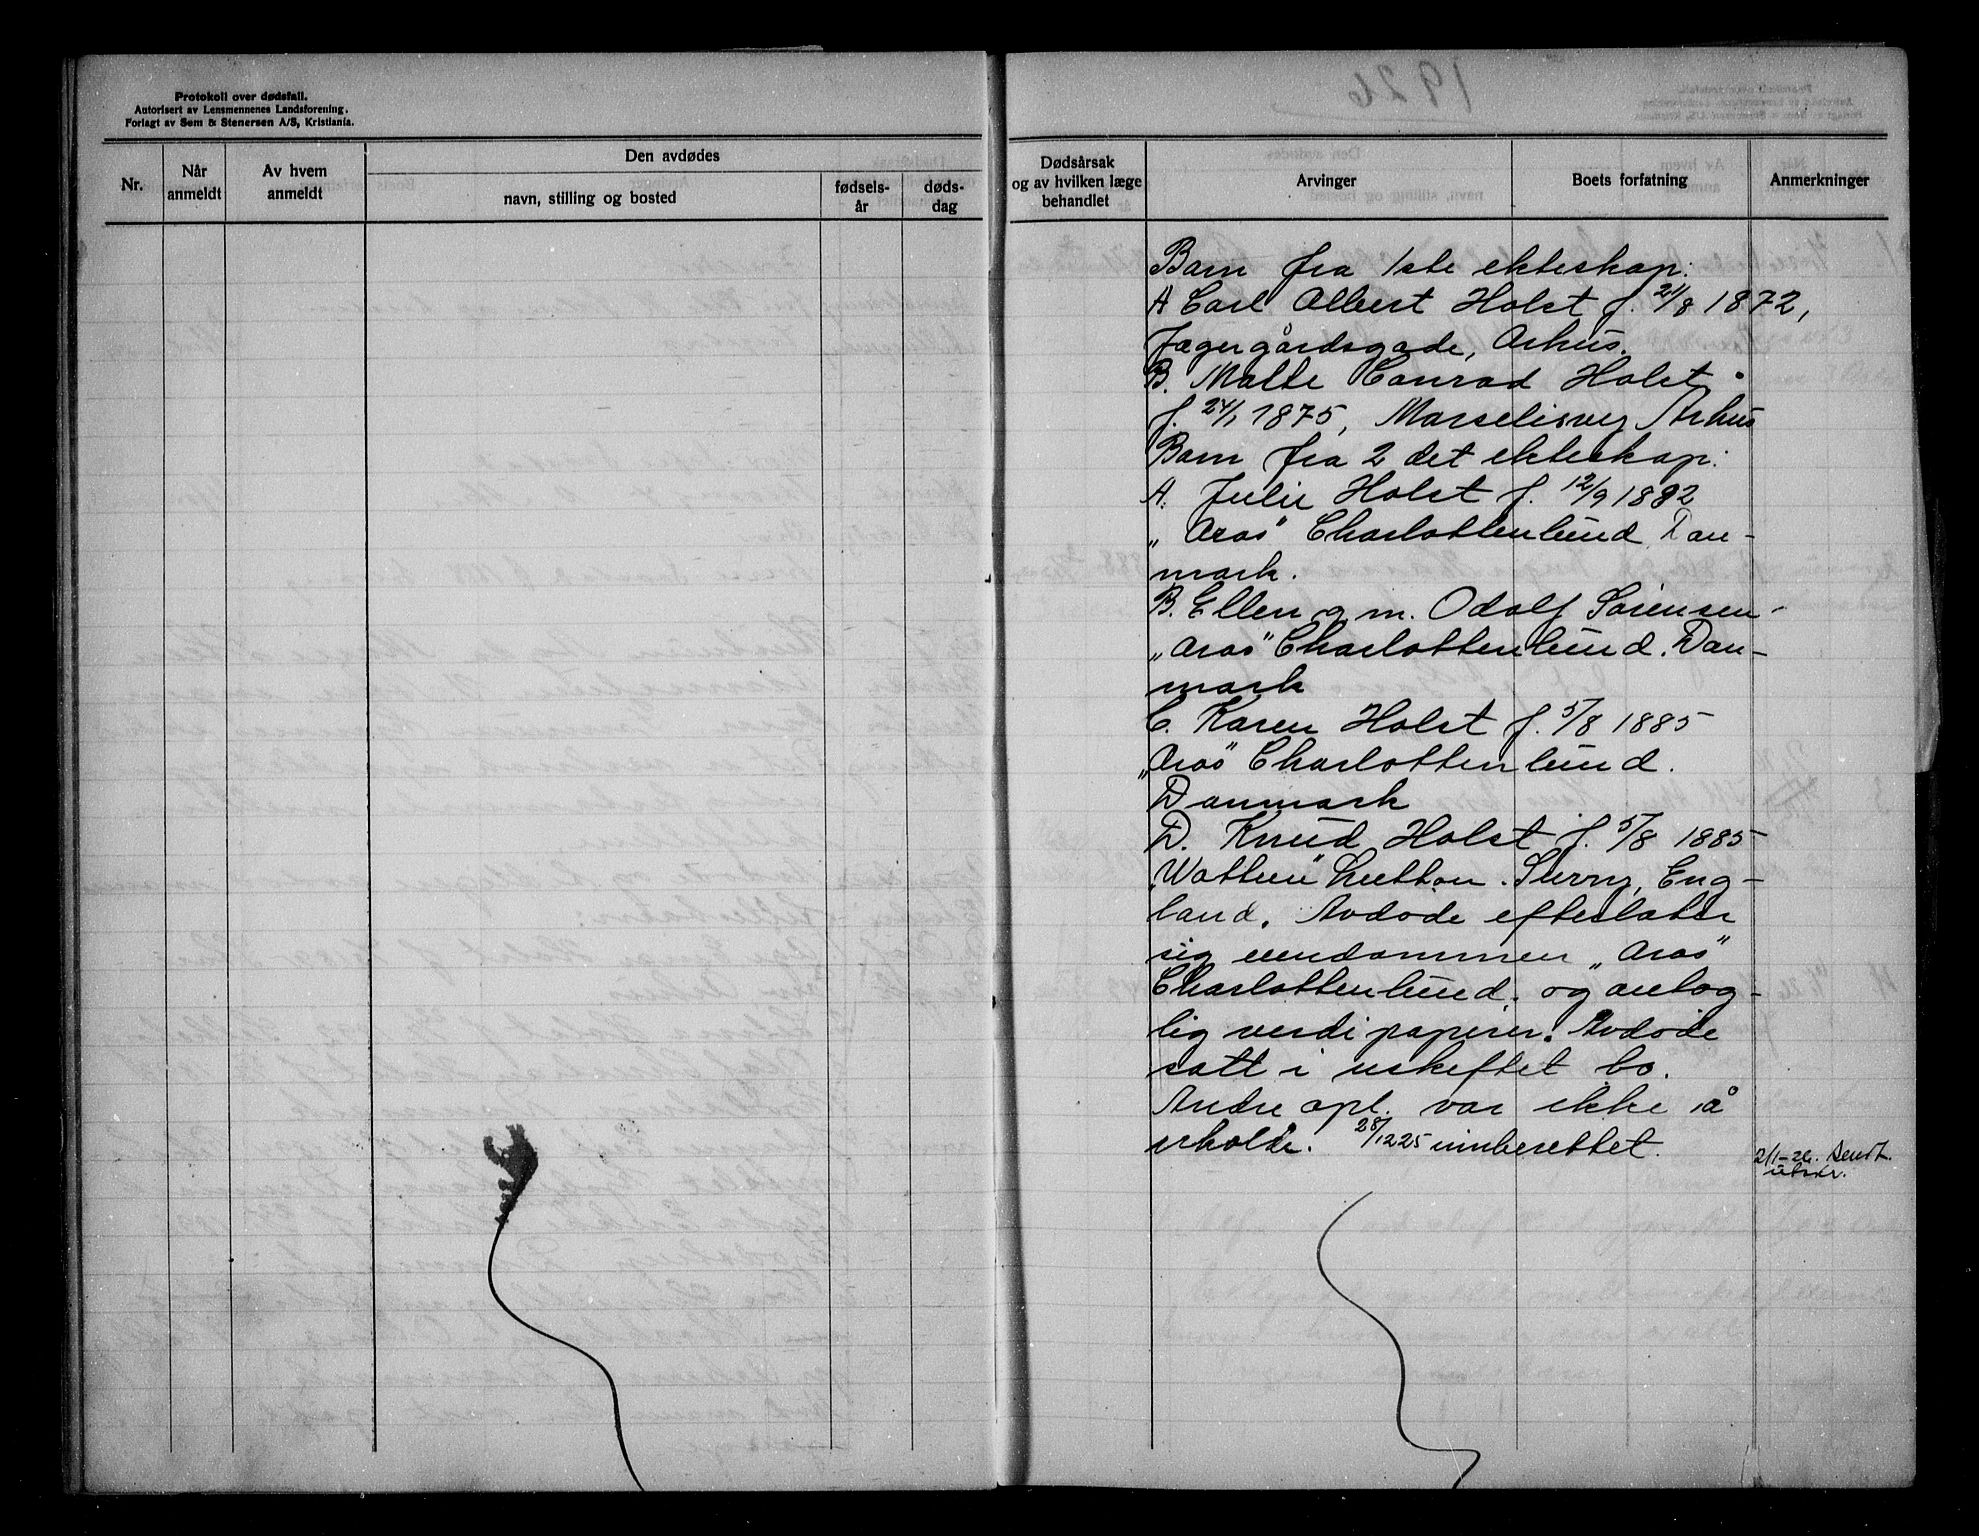 Protokoll over dødsfall.
Autorisert av Lensmennenes Landsforening.
Forlagt av Sem & Stenersen A/S, Kristiania.
Nr.
Når anmeldt
Av hvem anmeldt
Den avdødes
navn, stilling og bosted
fødsels-år
døds-dag
Dødsårsak og av hvilken læge behandlet
Arvinger
Boets forfatning
Anmerkninger
Barn fra 1ste ekteskap:
A Carl Albert Holst f. 21/8 1872,
Jægergårdsgade, Arhus.
B. Malte Conrad Holst
f. 24/1 1875, Marselisvej Arhus
Barn fra 2 det ekteskap:
A. Julie Holst f. 12/9 1882
„Aros" Charlottenlund Dan-
mark.
B. Ellen g. m. Odolf Sørensen
„Aros" Charlottenlund. Dan-
mark
C. Karen Holst f. 5/8 1885
„Aros" Charlottenlund.
Danmark
D. Knud Holst f. 5/8 1885
Sutton. Surry, Eng-
land. Avdøde efterlater
sig eiendommen „Aros"
Charlottenlund. og antog-
lig verdipapirer. Avdøde
satt i uskiftet bo.
Andre opl. var ikke å
erholde. 28/12 25 innberettet.
2/1-26. Sendt
utskr.
1926